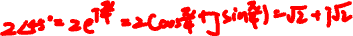 2∠45° = 2e^{jπ/4} = 2(cos π/4 + j sin π/4) = √2 + j√2